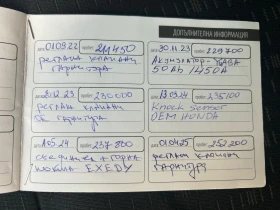 ДОПЪЛНИТЕЛНА ИНФОРМАЦИЯ
01.09.22 211450
реглаж клапани
гарнитура
30.11.23 229700
Акумулатор
50Ah 450A
21.12.23 230000
реглаж клапани
OE гарнитура
13.03.24 235100
Knock Sensor
OEM HONDA
15.5.24 237800
съединител + горна
EXEDY
01.04.25 252200
реглаж клапани
гарнитура